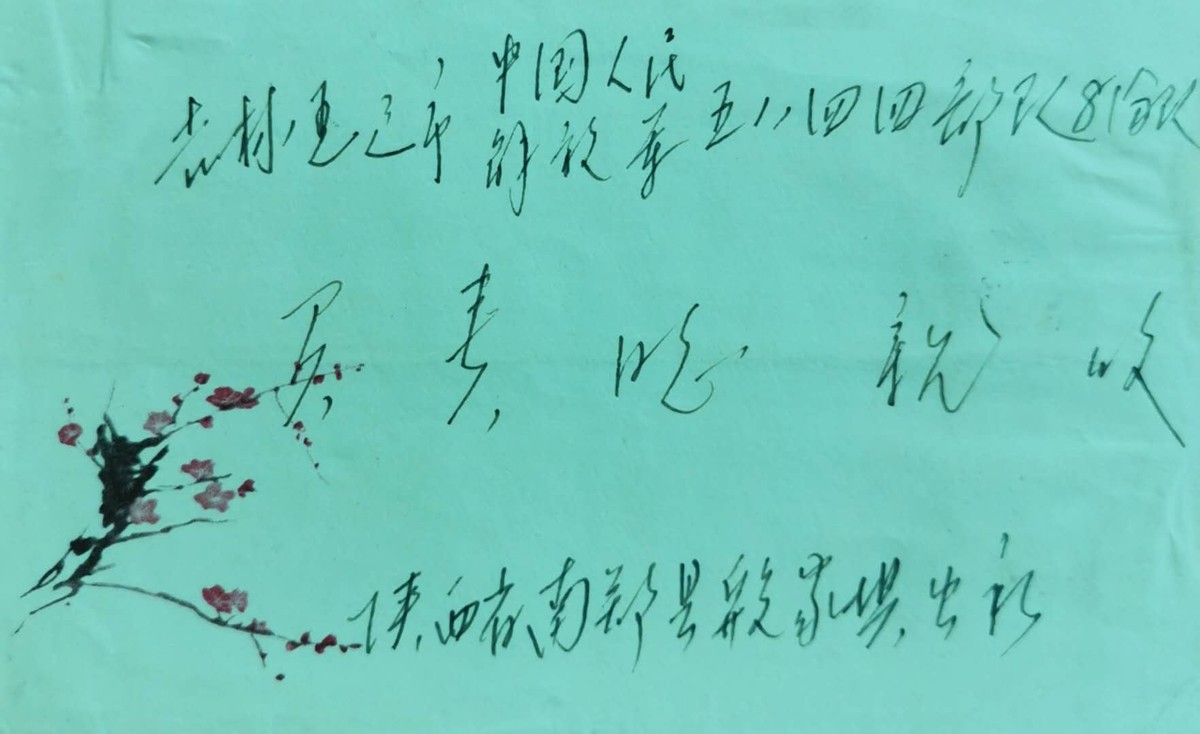 吉林通辽市 中国人民解放军 五八四四部队81分队
吴春晓 亲收
陕西省南郑县殷家坝公社